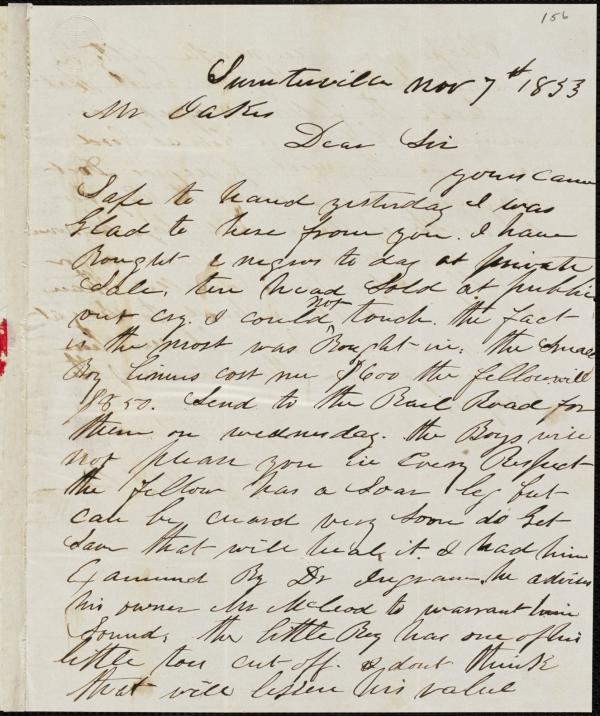 156
Sumterville Nov 7th 1853
Mr Oakes
Dear Sir
yours came
Safe to hand yesterday I was
Glad to here from you. I have
Bought 2 negros to day at private
Sale, ten head Sold at public
out cry. I could not touch the fact
is the most was Bought in; the Small
Boy cost me $600 the fellow will
$850. Send to the Rail Road for
them on wednesday. the Boys will
not please you in Every Respect
the fellow has a Soar leg but
can be cuard very Soon do Get
Sam that will heal it. I had him
Examined By Dr Ingram he advises
his owner Mr McLeod to warrant him
Sound; the little Boy has one of his
little toes cut off. I dont think
that will lessen his value